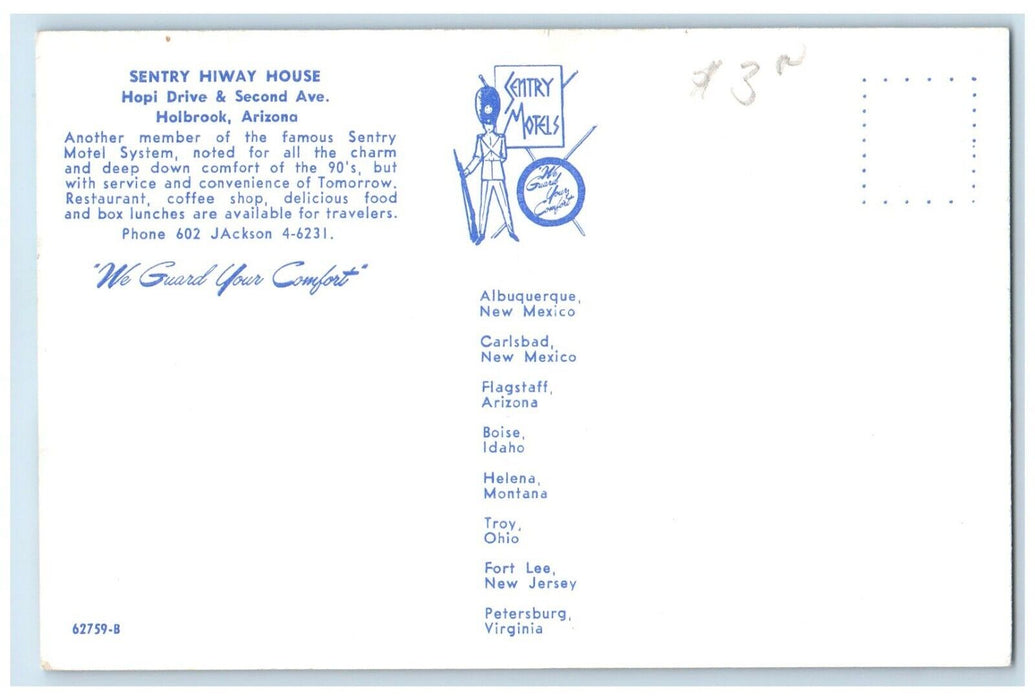 SENTRY HIWAY HOUSE
Hopi Drive & Second Ave.
Holbrook, Arizona
Another member of the famous Sentry
Motel System, noted for all the charm
and deep down comfort of the 90's, but
with service and convenience of Tomorrow.
Restaurant, coffee shop, delicious food
and box lunches are available for travelers.
Phone 602 JAckson 4-6231.
"We Guard Your Comfort"
62759-B
SENTRY
MOTELS
"We
Guard
Your
Comfort"
Albuquerque,
New Mexico
Carlsbad,
New Mexico
Flagstaff,
Arizona
Boise,
Idaho
Helena,
Montana
Troy,
Ohio
Fort Lee,
New Jersey
Petersburg,
Virginia
$3